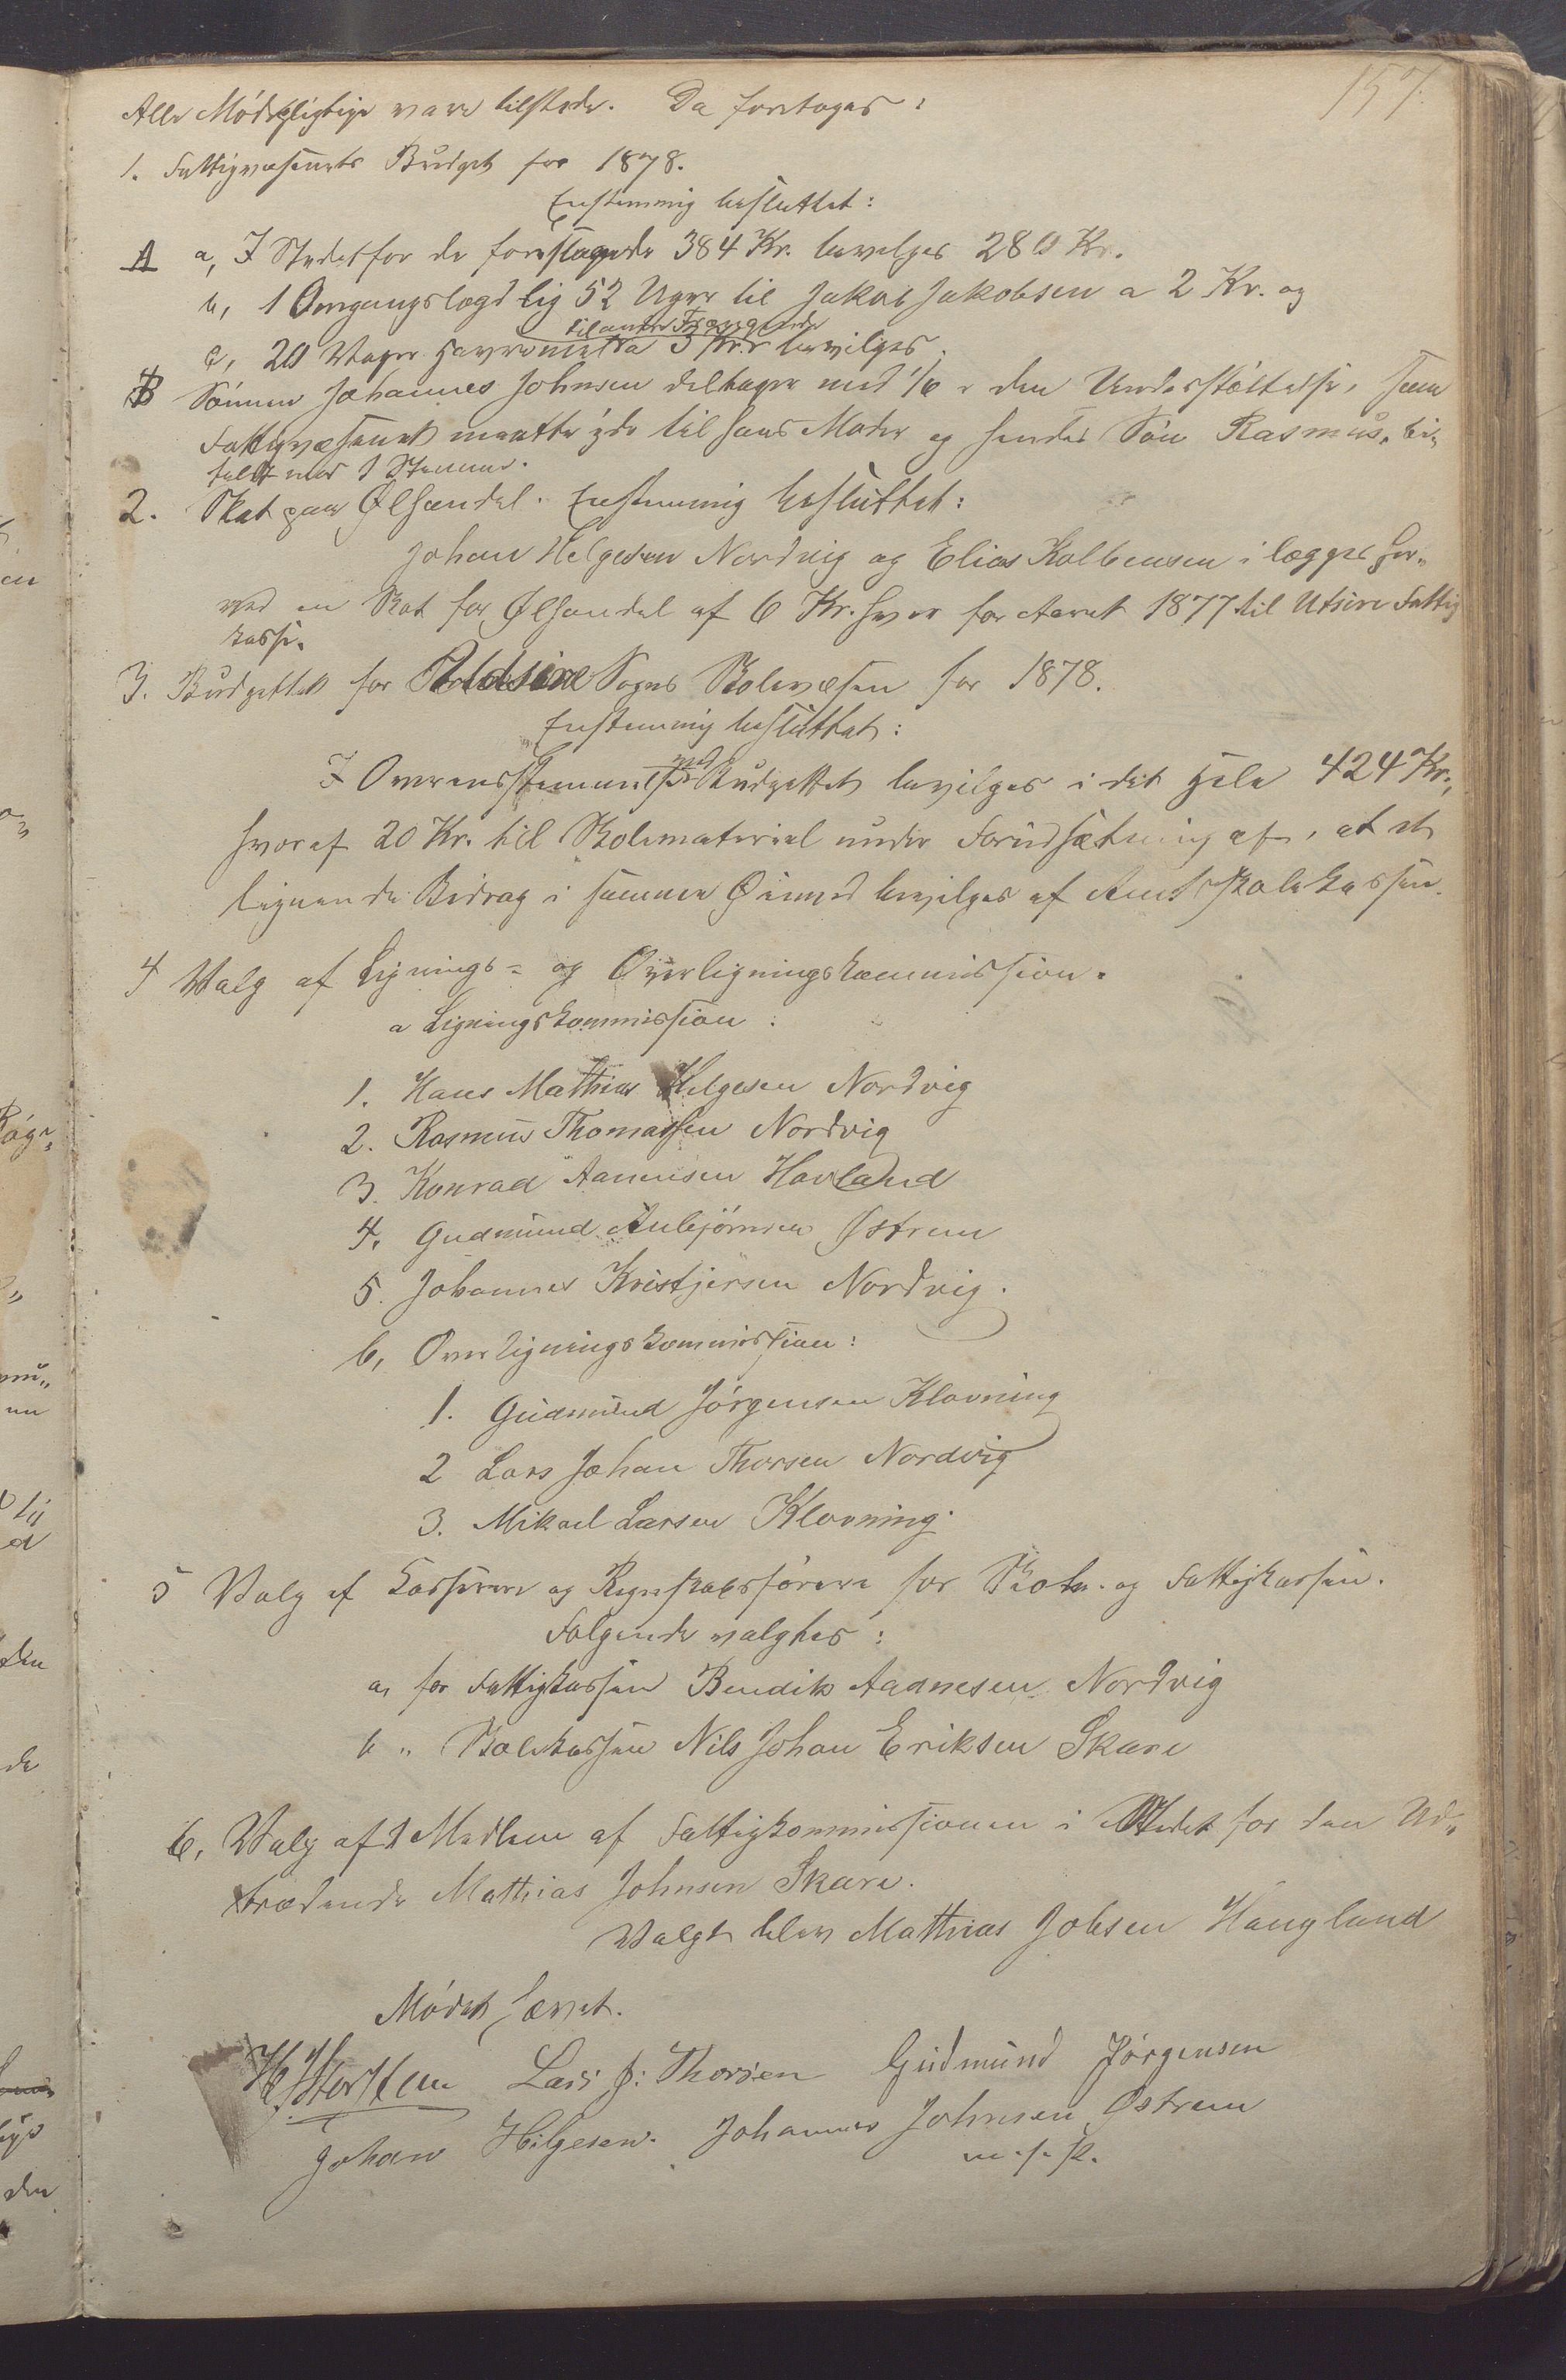 157.
Alle Mødepligtige vare tilstede. Da foretoges:
1. Fattigvæsenets Budget for 1878.
Enstemmig besluttet:
A a, I Stedet for de foreslagede 384 Kr. bevilges 280 Kr.
b, 1 Omgangslægd lig 52 Uger til Jakob Jakobsen a 2 Kr. og
til andre Trængende
c, 20 Vager Havremel a 3 Kr. bevilges.
B Sønnen Johannes Johnsen deltager med 1/6 i den Understøttelse, som
Fattigvæsenet maatte yde til hans Moder og hendes Søn Rasmus, bi-
faldt med 1 Stemme.
2. Skat paa Ølhandel. Enstemmig besluttet:
Johan Helgesen Nordvig og Elias Kolbensen ilægges her-
ved en Skat for Ølhandel af 6 Kr. hver for Aaret 1877 til Utsire Fattig
kasse.
3. Budgettet for Udsire Sogns Skolevæsen for 1878.
Enstemmig besluttet:
med
I Overensstemmelse Budgettet bevilges i det Hele 424 Kr.,
hvoraf 20 Kr. til Skolemateriel under Forudsætning af, at et
lignende Bidrag i samme Øiemed bevilges af Amtsskolekassen.
4 Valg af Lignings- og Overligningskommission.
a Ligningskommission:
1. Hans Mathias Helgesen Nordvig
2. Rasmus Thomassen Nordvig
3. Konrad Aanensen Hovland
4. Gudmund Anbjørnsen Østrem
5. Johannes Kristjersen Nordvig.
b, Overligningskommission:
1. Gudmund Jørgensen Klovning
2 Lars Johan Thorsen Nordvig
3. Mikael Larsen Klovning.
5 Valg af Kasserere og Regnskabsførere for Skole- og Fattigkassen.
Følgende valgtes:
a, for Fattigkassen Bendik Aadnesen Nordvig
b " Skolekassen Nils Johan Eriksen Skare
6, Valg af 1 Medlem af Fattigkommissionen i Stedet for den Ud-
trædende Mathias Johnsen Skare.
Valgt blev Mathias Jobsen Hougland
Mødet hævet.
Lars J: Thorsen Gudmund Jørgensen
Johan Helgesen. Johannes Johnsen Østrem
m. f. P.